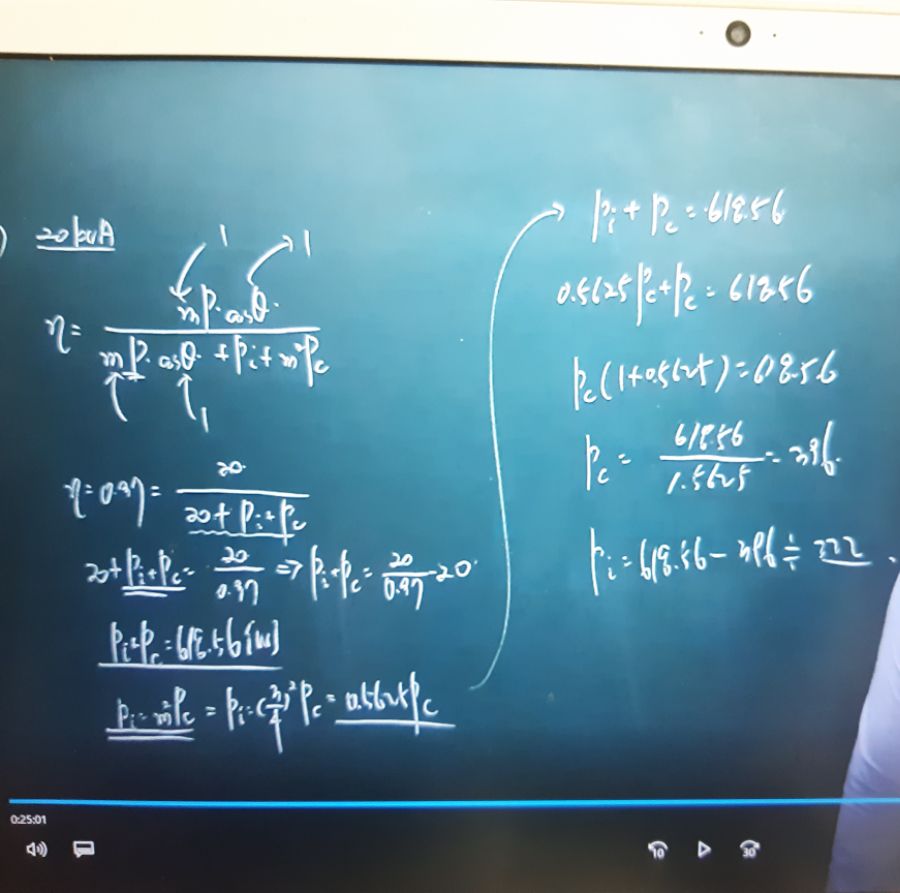 20kVA
1 1
η = mP·cosθ / mP·cosθ + Pi + m²Pc
1
η = 0.97 = 20 / 20 + Pi + Pc
20 + Pi + Pc = 20 / 0.97 ⇒ Pi + Pc = 20 / 0.97 - 20
Pi + Pc = 618.56 [W]
Pi = m²Pc = Pi = (3/4)² Pc = 0.5625Pc
Pi + Pc = 618.56
0.5625Pc + Pc = 618.56
Pc(1+0.5625) = 618.56
Pc = 618.56 / 1.5625 = 396.
Pi = 618.56 - 396 ≒ 222
0:25:01
10
30